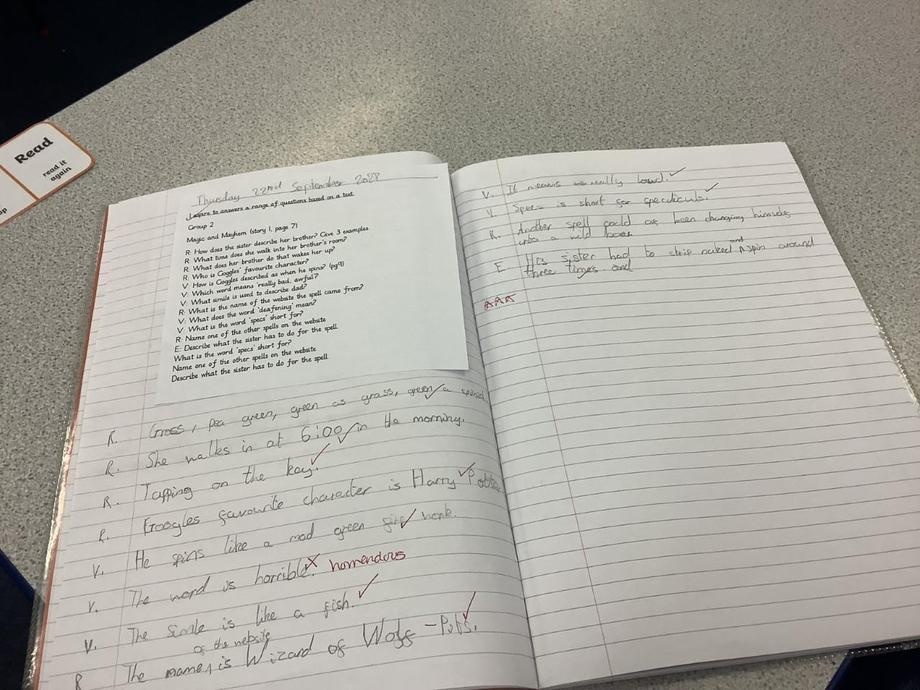 Read
read it
again
op
Thursday 22nd September 2022
I aspire to answers a range of questions based on a text.
Group 2
Magic and Mayhem (story 1, page 7)
R: How does the sister describe her brother? Give 3 examples
R: What time does she walk into her brother's room?
R: What does her brother do that wakes her up?
R: Who is Goggles' favourite character?
V: How is Goggles described as when he spins? (pg9)
V: Which word means 'really bad, awful'?
V: What simile is used to describe dad?
R: What is the name of the website the spell came from?
V: What does the word 'deafening' mean?
V: What is the word 'specs' short for?
R: Name one of the other spells on the website
E: Describe what the sister has to do for the spell.
What is the word 'specs' short for?
Name one of the other spells on the website
Describe what the sister has to do for the spell.
R. Gross, pea green, green as grass, green a
R. She walks in at 6:00 in the morning.
R. Tapping on the key.
R. Googles favourite character is Harry Potter
V. He spins like a mad green
V. The word is horrible. X homendous
V. The simile is like a fish.
of the website
R The name is Wizard of Woff-Pots.
V. It means really loud.
V. Specs is short for
R. Another spell could of been changing himself
into a wild
E His sister had to strip naked and spin around
three times and
AAA